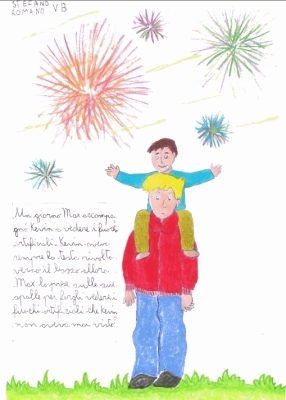 STEFANO
ROMANO VB
Un giorno Max accompa
gnò Kevin a vedere i fuochi
artificiali. Kevin aveva
sempre la testa rivolta
verso il basso allora
Max lo posa sulle sue
spalle per fargli vedere i
fuochi artificiali che Kevin
non aveva mai visto